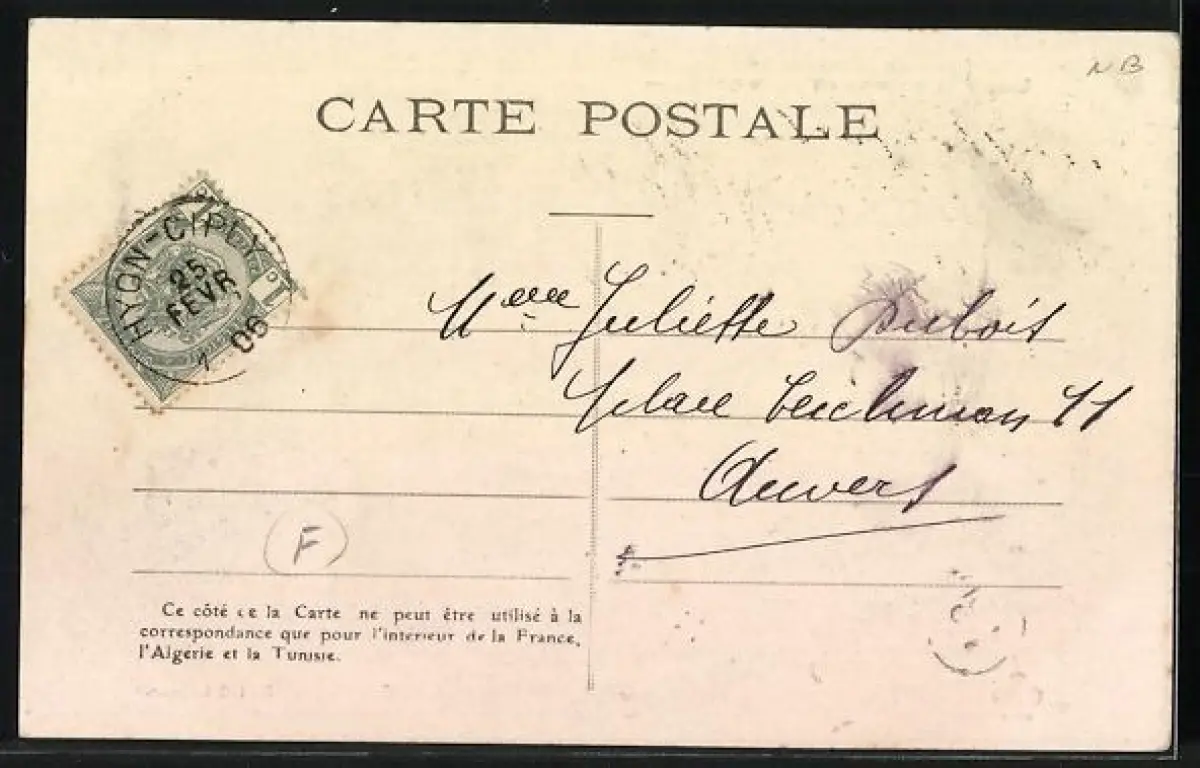 NB
CARTE POSTALE
HYON-CIPLY
25
FEVR
1 06
1
Melle Juliette Dubois
Place Teichman 11
Anvers
F
Ce côté de la Carte ne peut être utilisé à la
correspondance que pour l'intérieur de la France,
l'Algérie et la Tunisie.